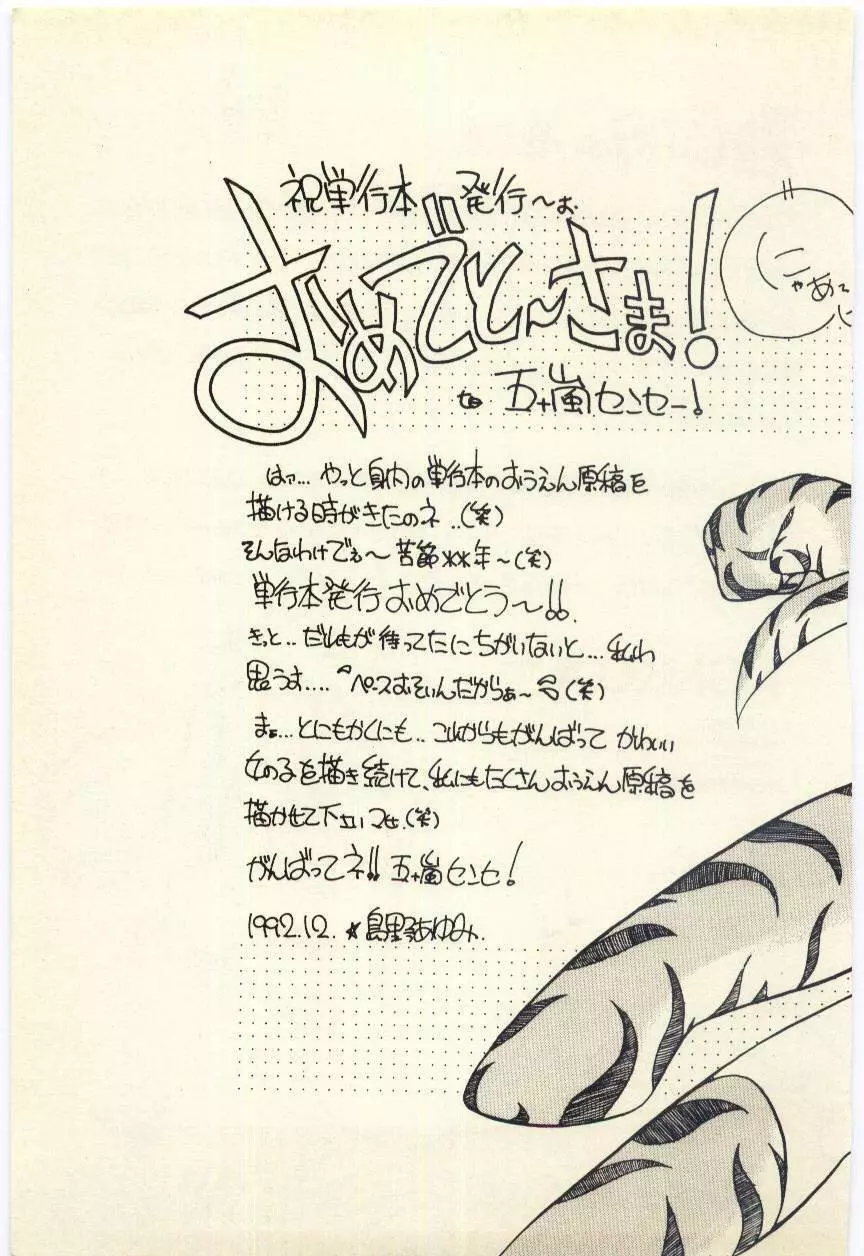 祝単行本発行〜お
おめでと〜さま!
to 五十嵐センセー!
にゃあて
に
はァ… やっと身内の単行本のおうえん原稿を
描ける時がきたのネ..(笑)
そんなわけでぇ〜 苦節××年〜(笑)
単行本発行 おめでとう〜!!
きっと..だれもが待ってたにちがいないと…私わ
思うす‥‥ペースおそいんだからぁ〜 (笑)
まぁ…とにもかくにも..これからもがんばって かわいい
女の子を描き続けて、私にもたくさんおうえん原稿を
描かせて下さいマセ.(笑)
がんばってネ!! 五十嵐センセ!
1992.12. ☆島野あゆみ.